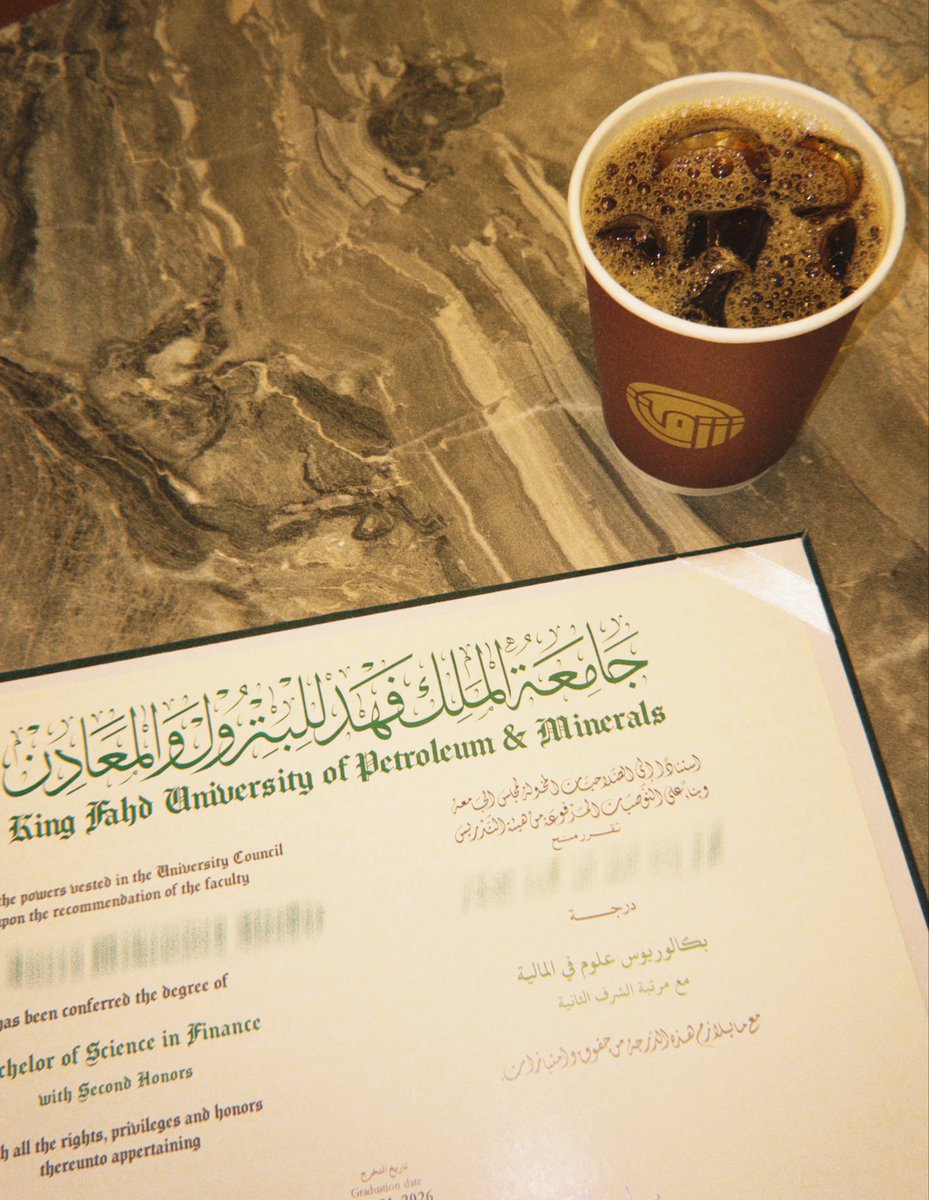 جامعة الملك فهد للبترول والمعادن
King Fahd University of Petroleum & Minerals
استنادًا إلى الصلاحيات المخولة لمجلس الجامعة
وبناءً على التوصيات المرفوعة من هيئة التدريس
تقرر منح
درجة
بكالوريوس علوم في المالية
مع مرتبة الشرف الثانية
مع ما يلازم هذه الدرجة من حقوق وامتيازات.
the powers vested in the University Council
upon the recommendation of the faculty
has been conferred the degree of
chelor of Science in Finance
with Second Honors
h all the rights, privileges and honors
thereunto appertaining
تاريخ التخرج
Graduation date
2026